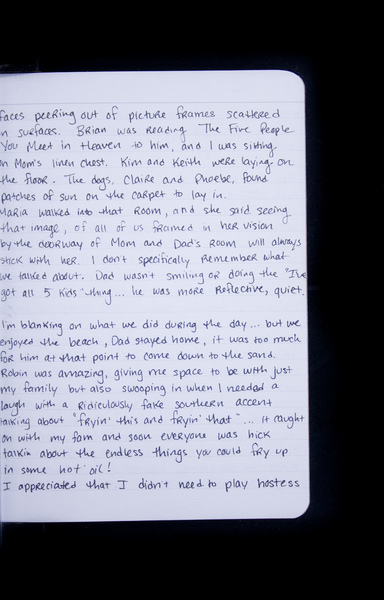 faces peering out of picture frames scattered
n surfaces. Brian was reading The Five People
You Meet in Heaven to him, and I was sitting
n Mom's linen chest. Kim and Keith were laying on
the floor. The dogs, Claire and Phoebe, found
patches of sun on the carpet to lay in.
Maria walked into that room, and she said seeing
that image, of all of us framed in her vision
by the doorway of Mom and Dad's room will always
stick with her. I don't specifically remember what
we talked about. Dad wasn't smiling or doing the "I've
got all 5 kids" thing... he was more reflective, quiet.
I'm blanking on what we did during the day... but we
enjoyed the beach, Dad stayed home, it was too much
for him at that point to come down to the sand.
Robin was amazing, giving me space to be with just
my family but also swooping in when I needed a
laugh with a ridiculously fake southern accent
talking about "fryin' this and fryin' that"... it caught
on with my fam and soon everyone was hick
talkin about the endless things you could fry up
in some hot oil!
I appreciated that I didn't need to play hostess